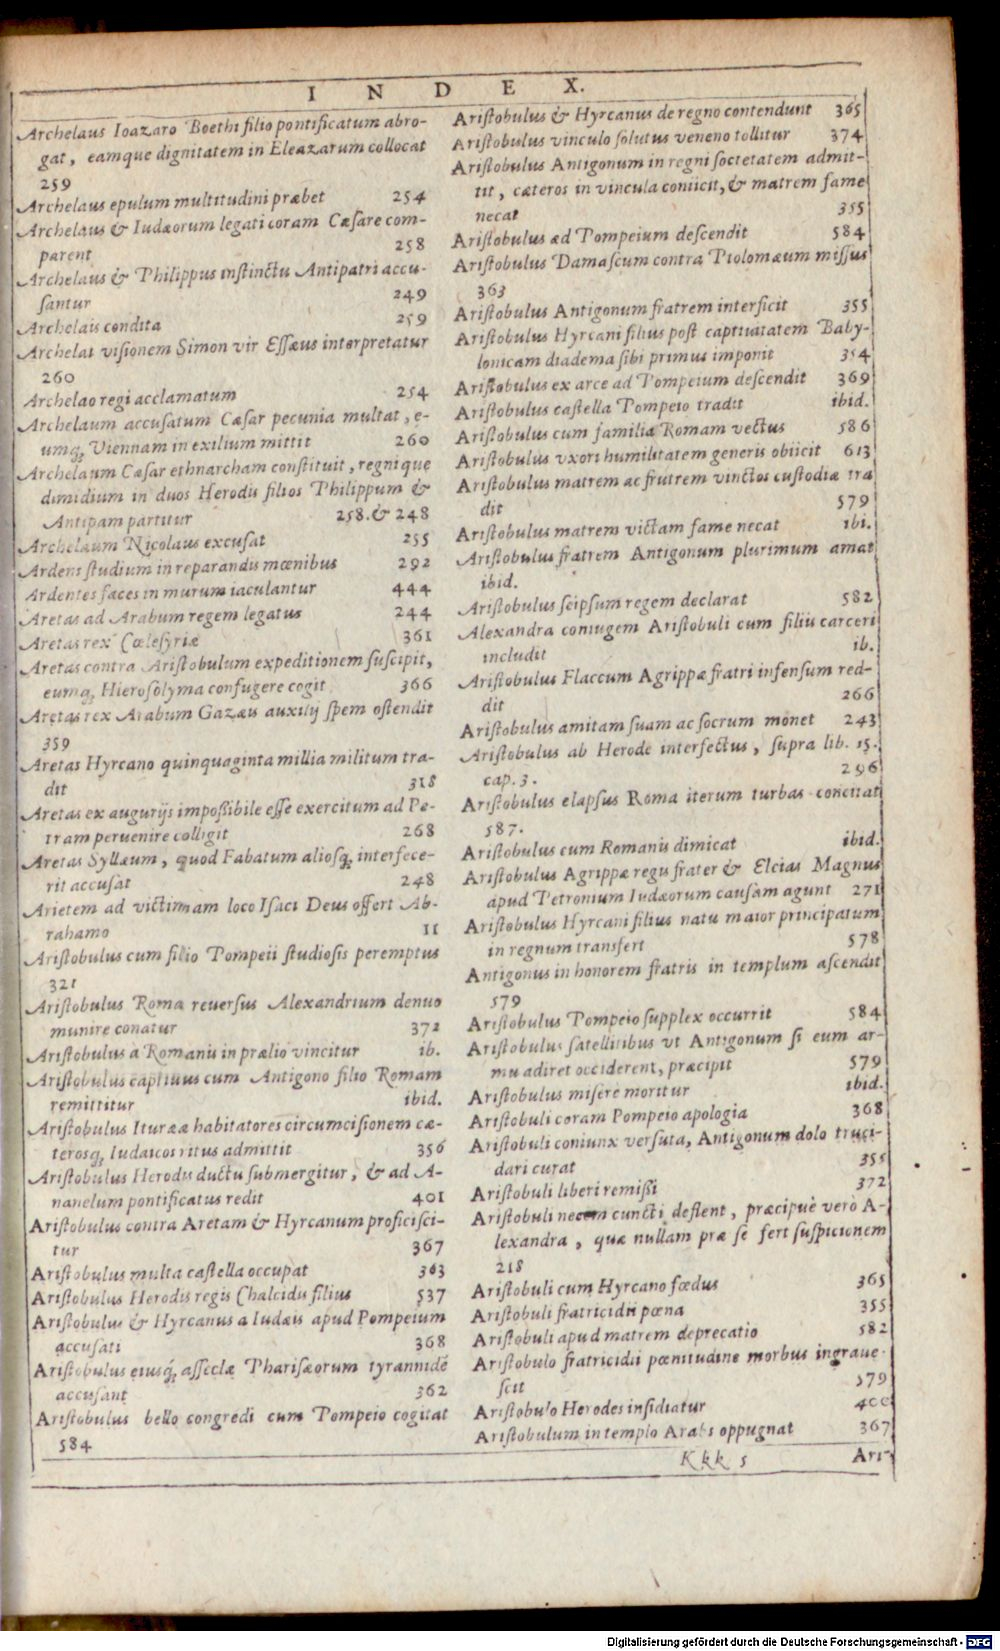 INDEX.
Archelaus Ioazaro Boethi filio pontificatum abro-
gat, eamque dignitatem in Eleazarum collocat
259
Archelaus epulum multitudini præbet 254
Archelaus & Iudæorum legati coram Cæsare com-
parent 258
Archelaus & Philippus instinctu Antipatri accu-
santur 249
Archelais condita 259
Archelai visionem Simon vir Essæus interpretatur
260
Archelao regi acclamatum 254
Archelaum accusatum Cæsar pecunia multat, e-
umq; Viennam in exilium mittit 260
Archelaum Cæsar ethnarcham constituit, regnique
dimidium in duos Herodis filios Philippum &
Antipam partitur 258. & 248
Archelaum Nicolaus excusat 255
Ardens studium in reparandis mœnibus 292
Ardentes faces in murum iaculantur 444
Aretas ad Arabum regem legatus 244
Aretas rex Cœlesyriæ 361
Aretas contra Aristobulum expeditionem suscipit,
eumq; Hierosolyma confugere cogit 366
Aretas rex Arabum Gazæis auxilij spem ostendit
359
Aretas Hyrcano quinquaginta millia militum tra-
dit 318
Aretas ex augurijs impoßibile esse exercitum ad Pe-
tram peruenire colligit 268
Aretas Syllæum, quod Fabatum aliosq; interfece-
rit accusat 248
Arietem ad victimam loco Isaci Deus offert Ab-
rahamo 11
Aristobulus cum filio Pompeii studiosis peremptus
321
Aristobulus Roma reuersus Alexandrium denuo
munire conatur 372
Aristobulus à Romanis in prælio vincitur ib.
Aristobulus captiuus cum Antigono filio Romam
remittitur ibid.
Aristobulus Iturææ habitatores circumcisionem cæ-
terosq; Iudaicos ritus admittit 356
Aristobulus Herodis ductu submergitur, & ad A-
nanelum pontificatus redit 401
Aristobulus contra Aretam & Hyrcanum proficisci-
tur 367
Aristobulus multa castella occupat 363
Aristobulus Herodis regis Chalcidis filius 537
Aristobulus & Hyrcanus a Iudæis apud Pompeium
accusati 368
Aristobulus eiusq; asseclæ Pharisæorum tyrannidẽ
accusant 362
Aristobulus bello congredi cum Pompeio cogitat
584
Aristobulus & Hyrcanus de regno contendunt 365
Aristobulus vinculo solutus veneno tollitur 374
Aristobulus Antigonum in regni societatem admit-
tit, cæteros in vincula coniicit, & matrem fame
necat 355
Aristobulus ad Pompeium descendit 584
Aristobulus Damascum contra Ptolomæum missus
363
Aristobulus Antigonum fratrem interficit 355
Aristobulus Hyrcani filius post captiuitatem Baby-
lonicam diadema sibi primus imponit 354
Aristobulus ex arce ad Pompeium descendit 369
Aristobulus castella Pompeio tradit ibid.
Aristobulus cum familia Romam vectus 586
Aristobulus vxori humilitatem generis obiicit 613
Aristobulus matrem ac frutrem vinctos custodiæ tra
dit 579
Aristobulus matrem victam fame necat ibi.
Aristobulus fratrem Antigonum plurimum amat
ibid.
Aristobulus seipsum regem declarat 582
Alexandra coniugem Aristobuli cum filiis carceri
includit ib.
Aristobulus Flaccum Agrippæ fratri infensum red-
dit 266
Aristobulus amitam suam ac socrum monet 243
Aristobulus ab Herode interfectus, supra lib. 15.
cap. 3. 296
Aristobulus elapsus Roma iterum turbas concitat
587.
Aristobulus cum Romanis dimicat ibid.
Aristobulus Agrippæ regis frater & Elcias Magnus
apud Petronium Iudæorum causam agunt 271
Aristobulus Hyrcani filius natu maior principatum
in regnum transfert 578
Antigonus in honorem fratris in templum ascendit
579
Aristobulus Pompeio supplex occurrit 584
Aristobulus satellitibus vt Antigonum si eum ar-
mu adiret occiderent, præcipit 579
Aristobulus misere moritur ibid.
Aristobuli coram Pompeio apologia 368
Aristobuli coniunx versuta, Antigonum dolo truci-
dari curat 355
Aristobuli liberi remißi 372
Aristobuli necem cuncti deflent, præcipuè verò A-
lexandra, quæ nullam præ se fert suspicionem
218
Aristobuli cum Hyrcano fœdus 365
Aristobuli fratricidii pœna 355
Aristobuli apud matrem deprecatio 582
Aristobulo fratricidii pœnitudine morbus ingraue-
scit 579
Aristobulo Herodes insidiatur 400
Aristobulum in templo Arabs oppugnat 367
Kkk 5 Ari-
Digitalisierung gefördert durch die Deutsche Forschungsgemeinschaft - DFG